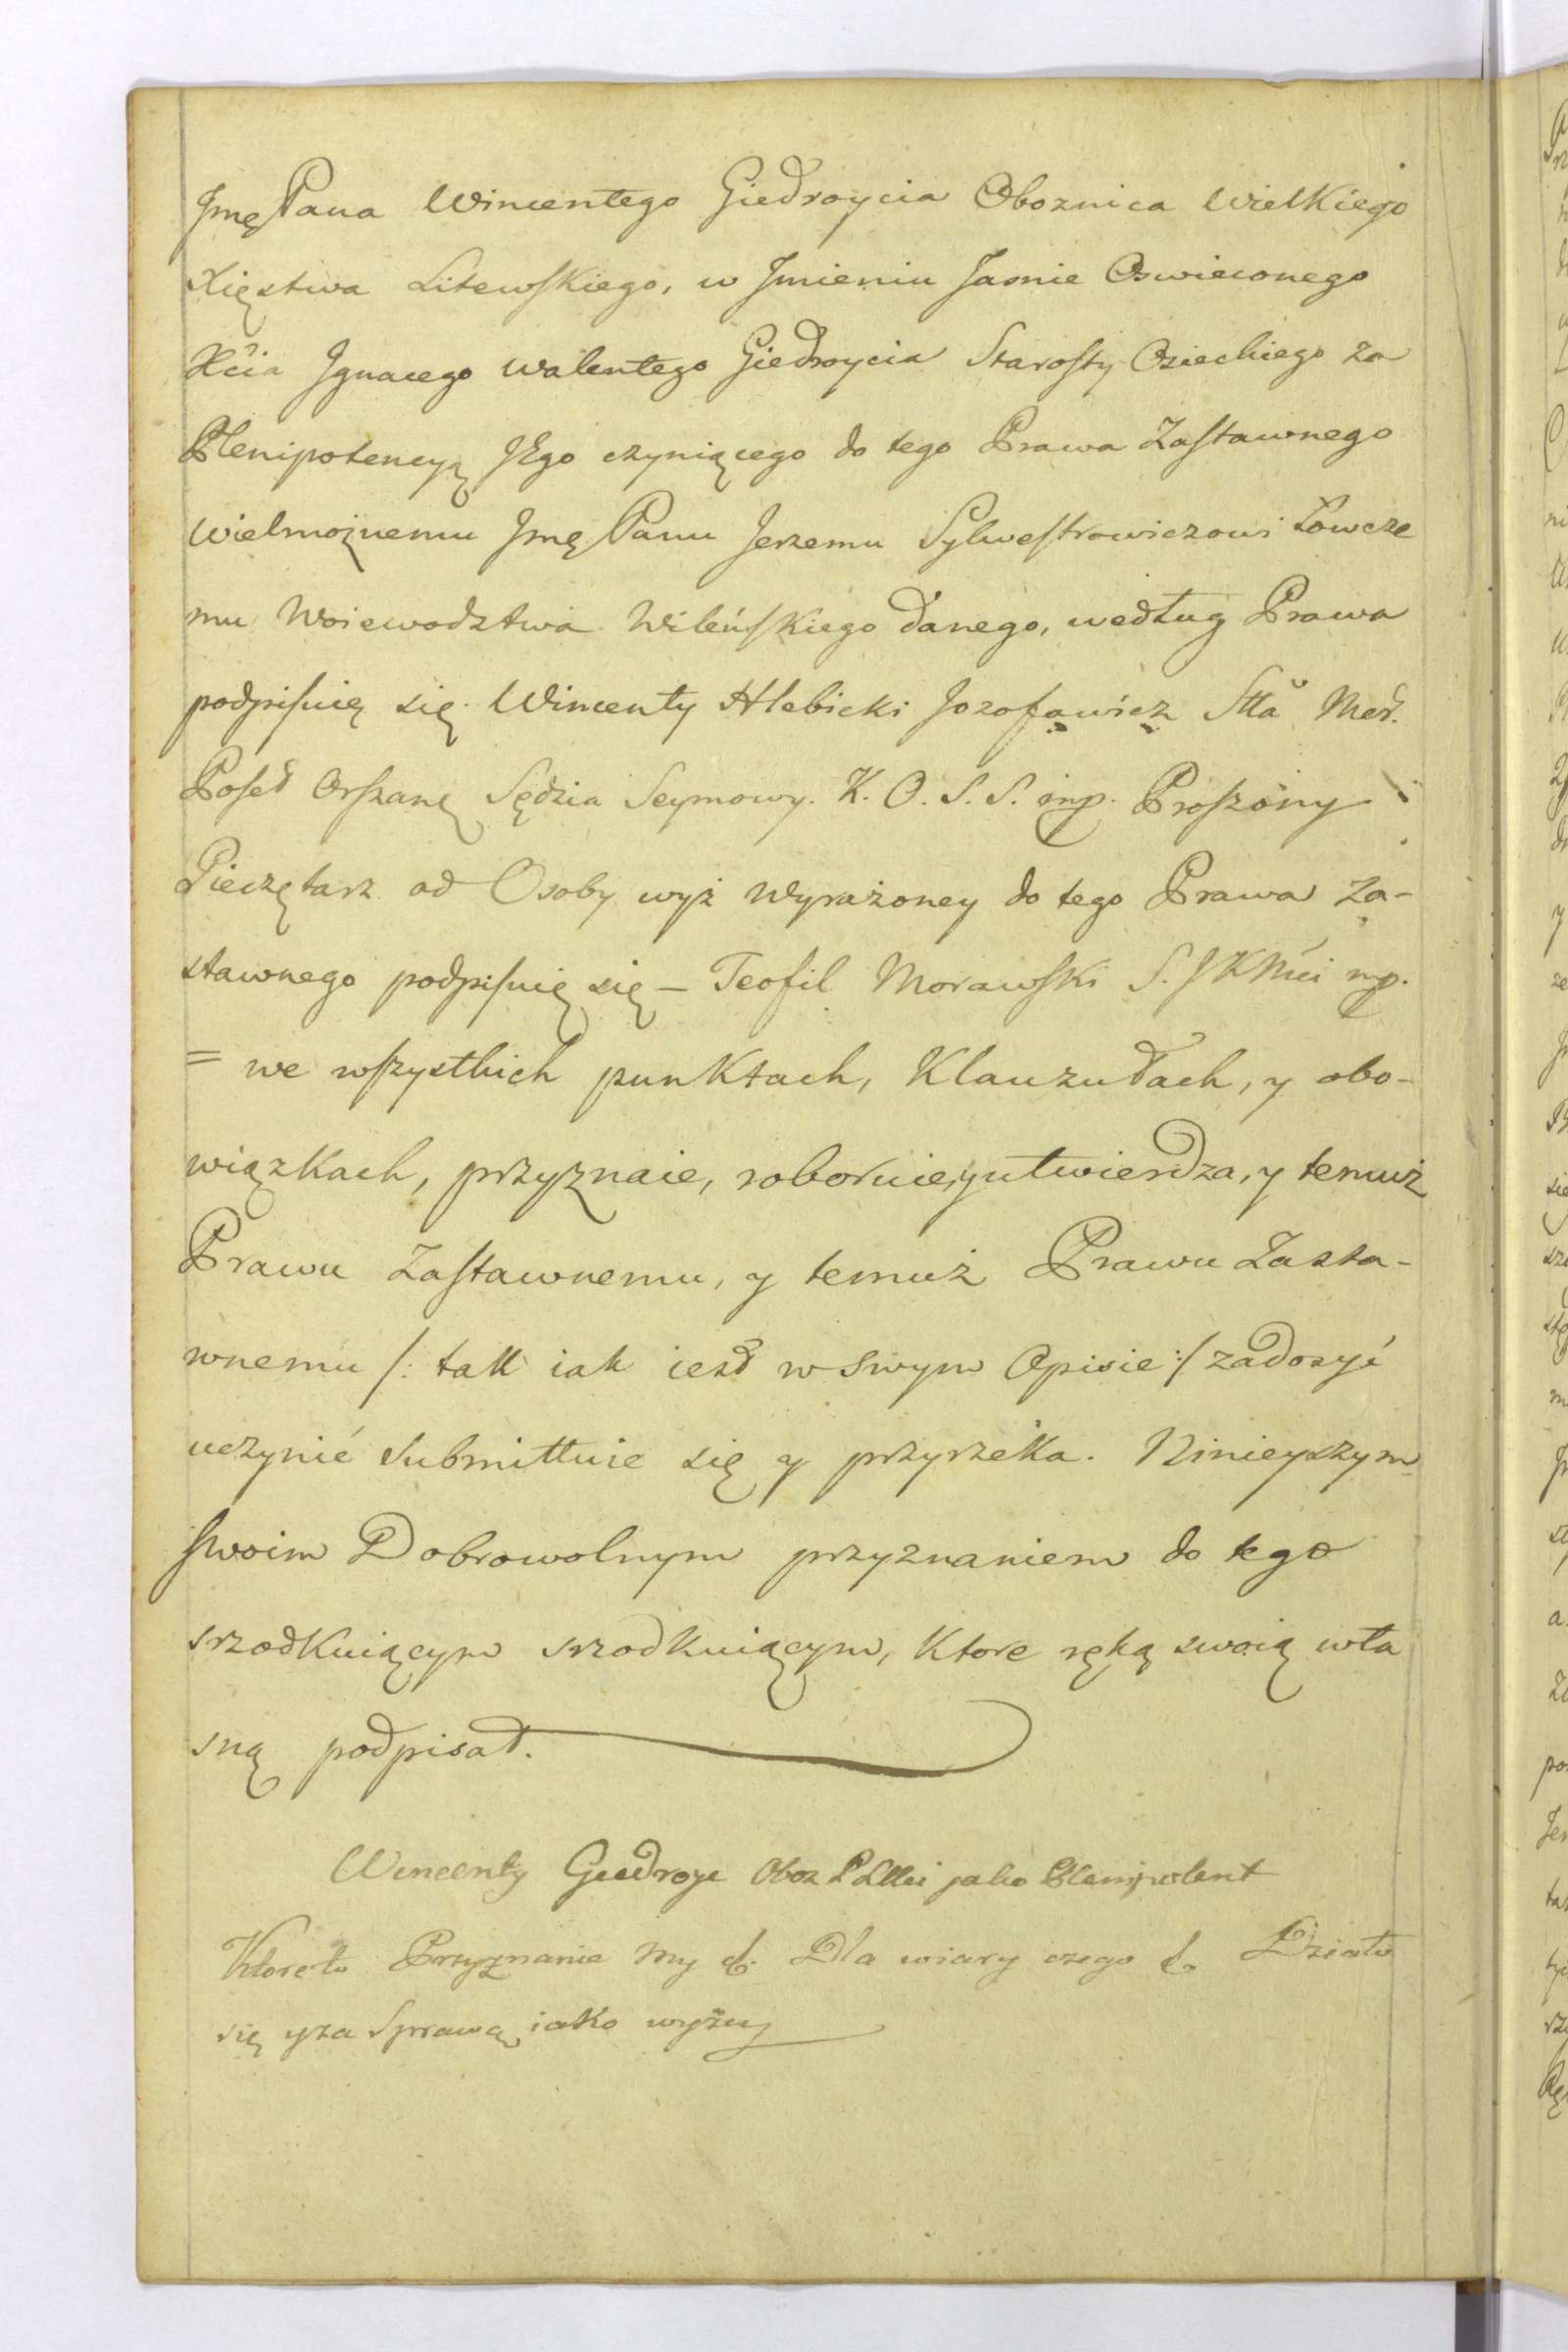 Jmę Pana Wincentego Giedroycia Oboznica Wielkiego
Xięstwa Litewskiego, w Jmieniu Jasnie Oswieconego
Xcia Jgnacego Walentego Giedroycia Starosty Osieckiego za
Plenipotencyą JEgo czyniącego do tego Prawa Zastawnego
Wielmożnemu Jmę Panu Jerzemu Sylwestrowiczowi Łowcze
mu Woiewodztwa Wileńskiego danego, według Prawa
podpisuię się. Wincenty Hlebicki Jozofowicz Stta Med.
Poseł Orszanę Sędzia Seymowy. K. O. S. S. mp. Proszony
Pieczętarz od Osoby wyż wyrażoney do tego Prawa Za-
stawnego podpisuię się – Teofil Morawski S. JKMci mp.
= we wszystkich punktach, Klauzułach, y obo-
wiązkach, przyznaie, roboruie, y utwierdza, y temuż
Prawu Zastawnemu, y temuż Prawu Zasta-
wnemu /: tak iak iest w swym Opisie :/ zadosyć
uczynić Submittuie się y przyrzeka. Ninieyszym
swoim Dobrowolnym przyznaniem do tego
srzodkuiącym srzodkuiącym, Ktore ręką swoią wła
sną podpisał.
Wincenty Giedroyc Oboz P Litti jako Plenipotent
Ktore to Przyznanie My &. Dla wiary czego &. Działo
się y za Sprawą iako wyżey